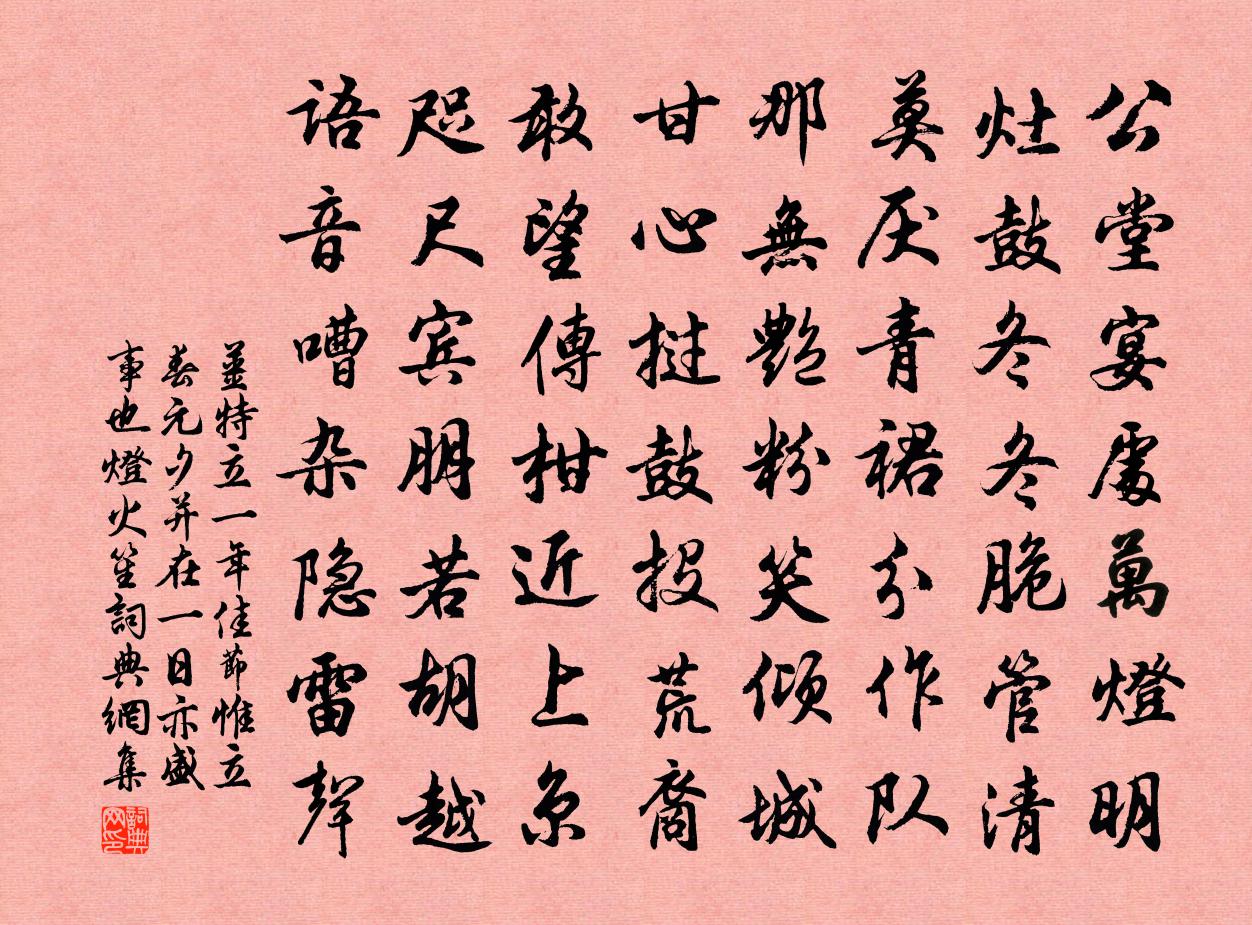 公堂宴處萬燈明
灶鼓冬冬脆管清
莫厌青裙分作队
那無艷粉笑倾城
甘心挝鼓投荒裔
敢望傳柑近上京
咫尺宾朋若胡越
语音嘈杂隐雷聲
姜特立一年佳節惟立
春元夕并在一日亦盛
事也燈火笙詞典網集
詞典
网印